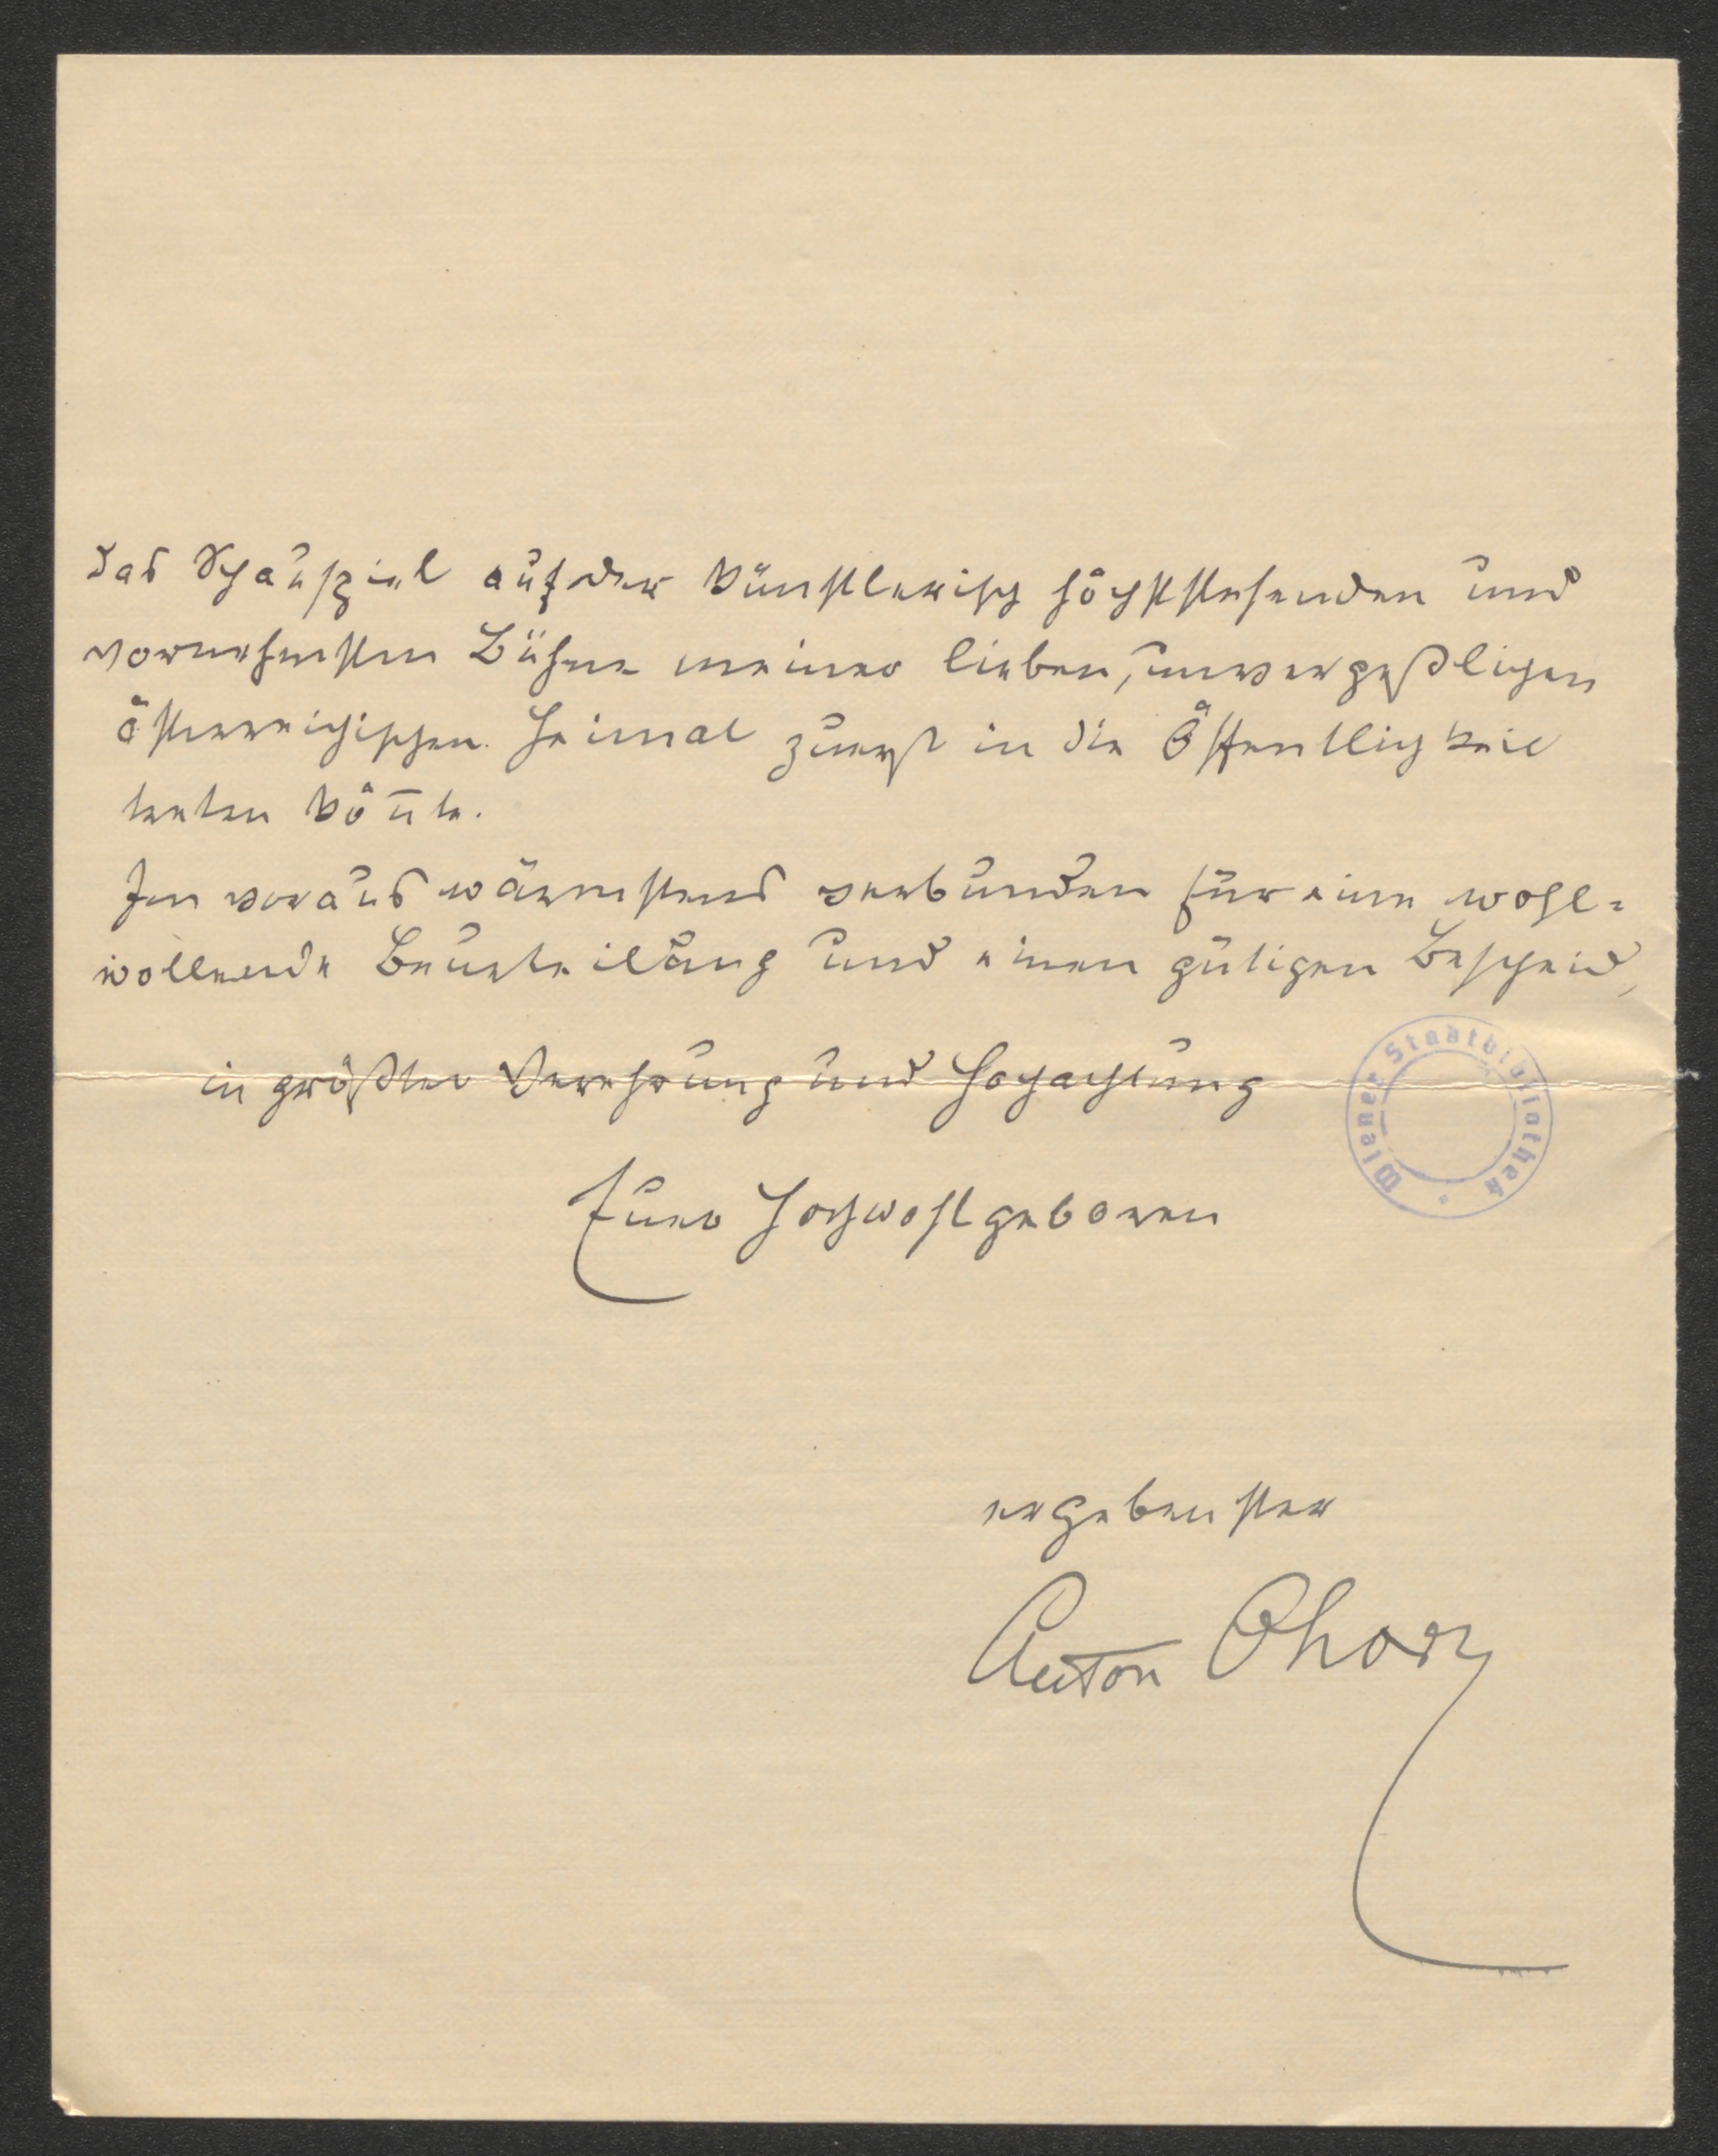 das Schauspiel auf der künstlerisch höchststehenden und
vornehmsten Bühne meiner lieben, unvergeßlichen
österreichischen Heimat zuerst in die Öffentlichkeit
treten kön̄te.
Im voraus wärmstens verbunden für eine wohl=
wollende Beurteilung und einen gütigen Bescheid,
in größter Verehrung und Hochachtung
Euer Hochwohlgeboren
Wiener Stadtbibliothek
ergebenster
Anton Ohorn